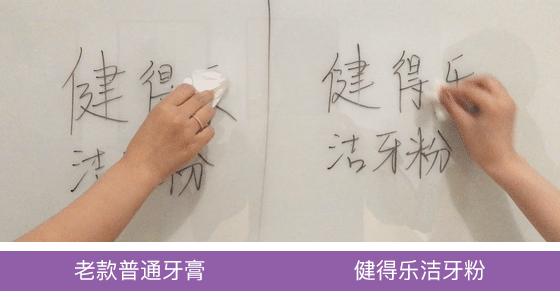 健得
粉
健得乐
洁牙粉
老款普通牙膏
健得乐洁牙粉